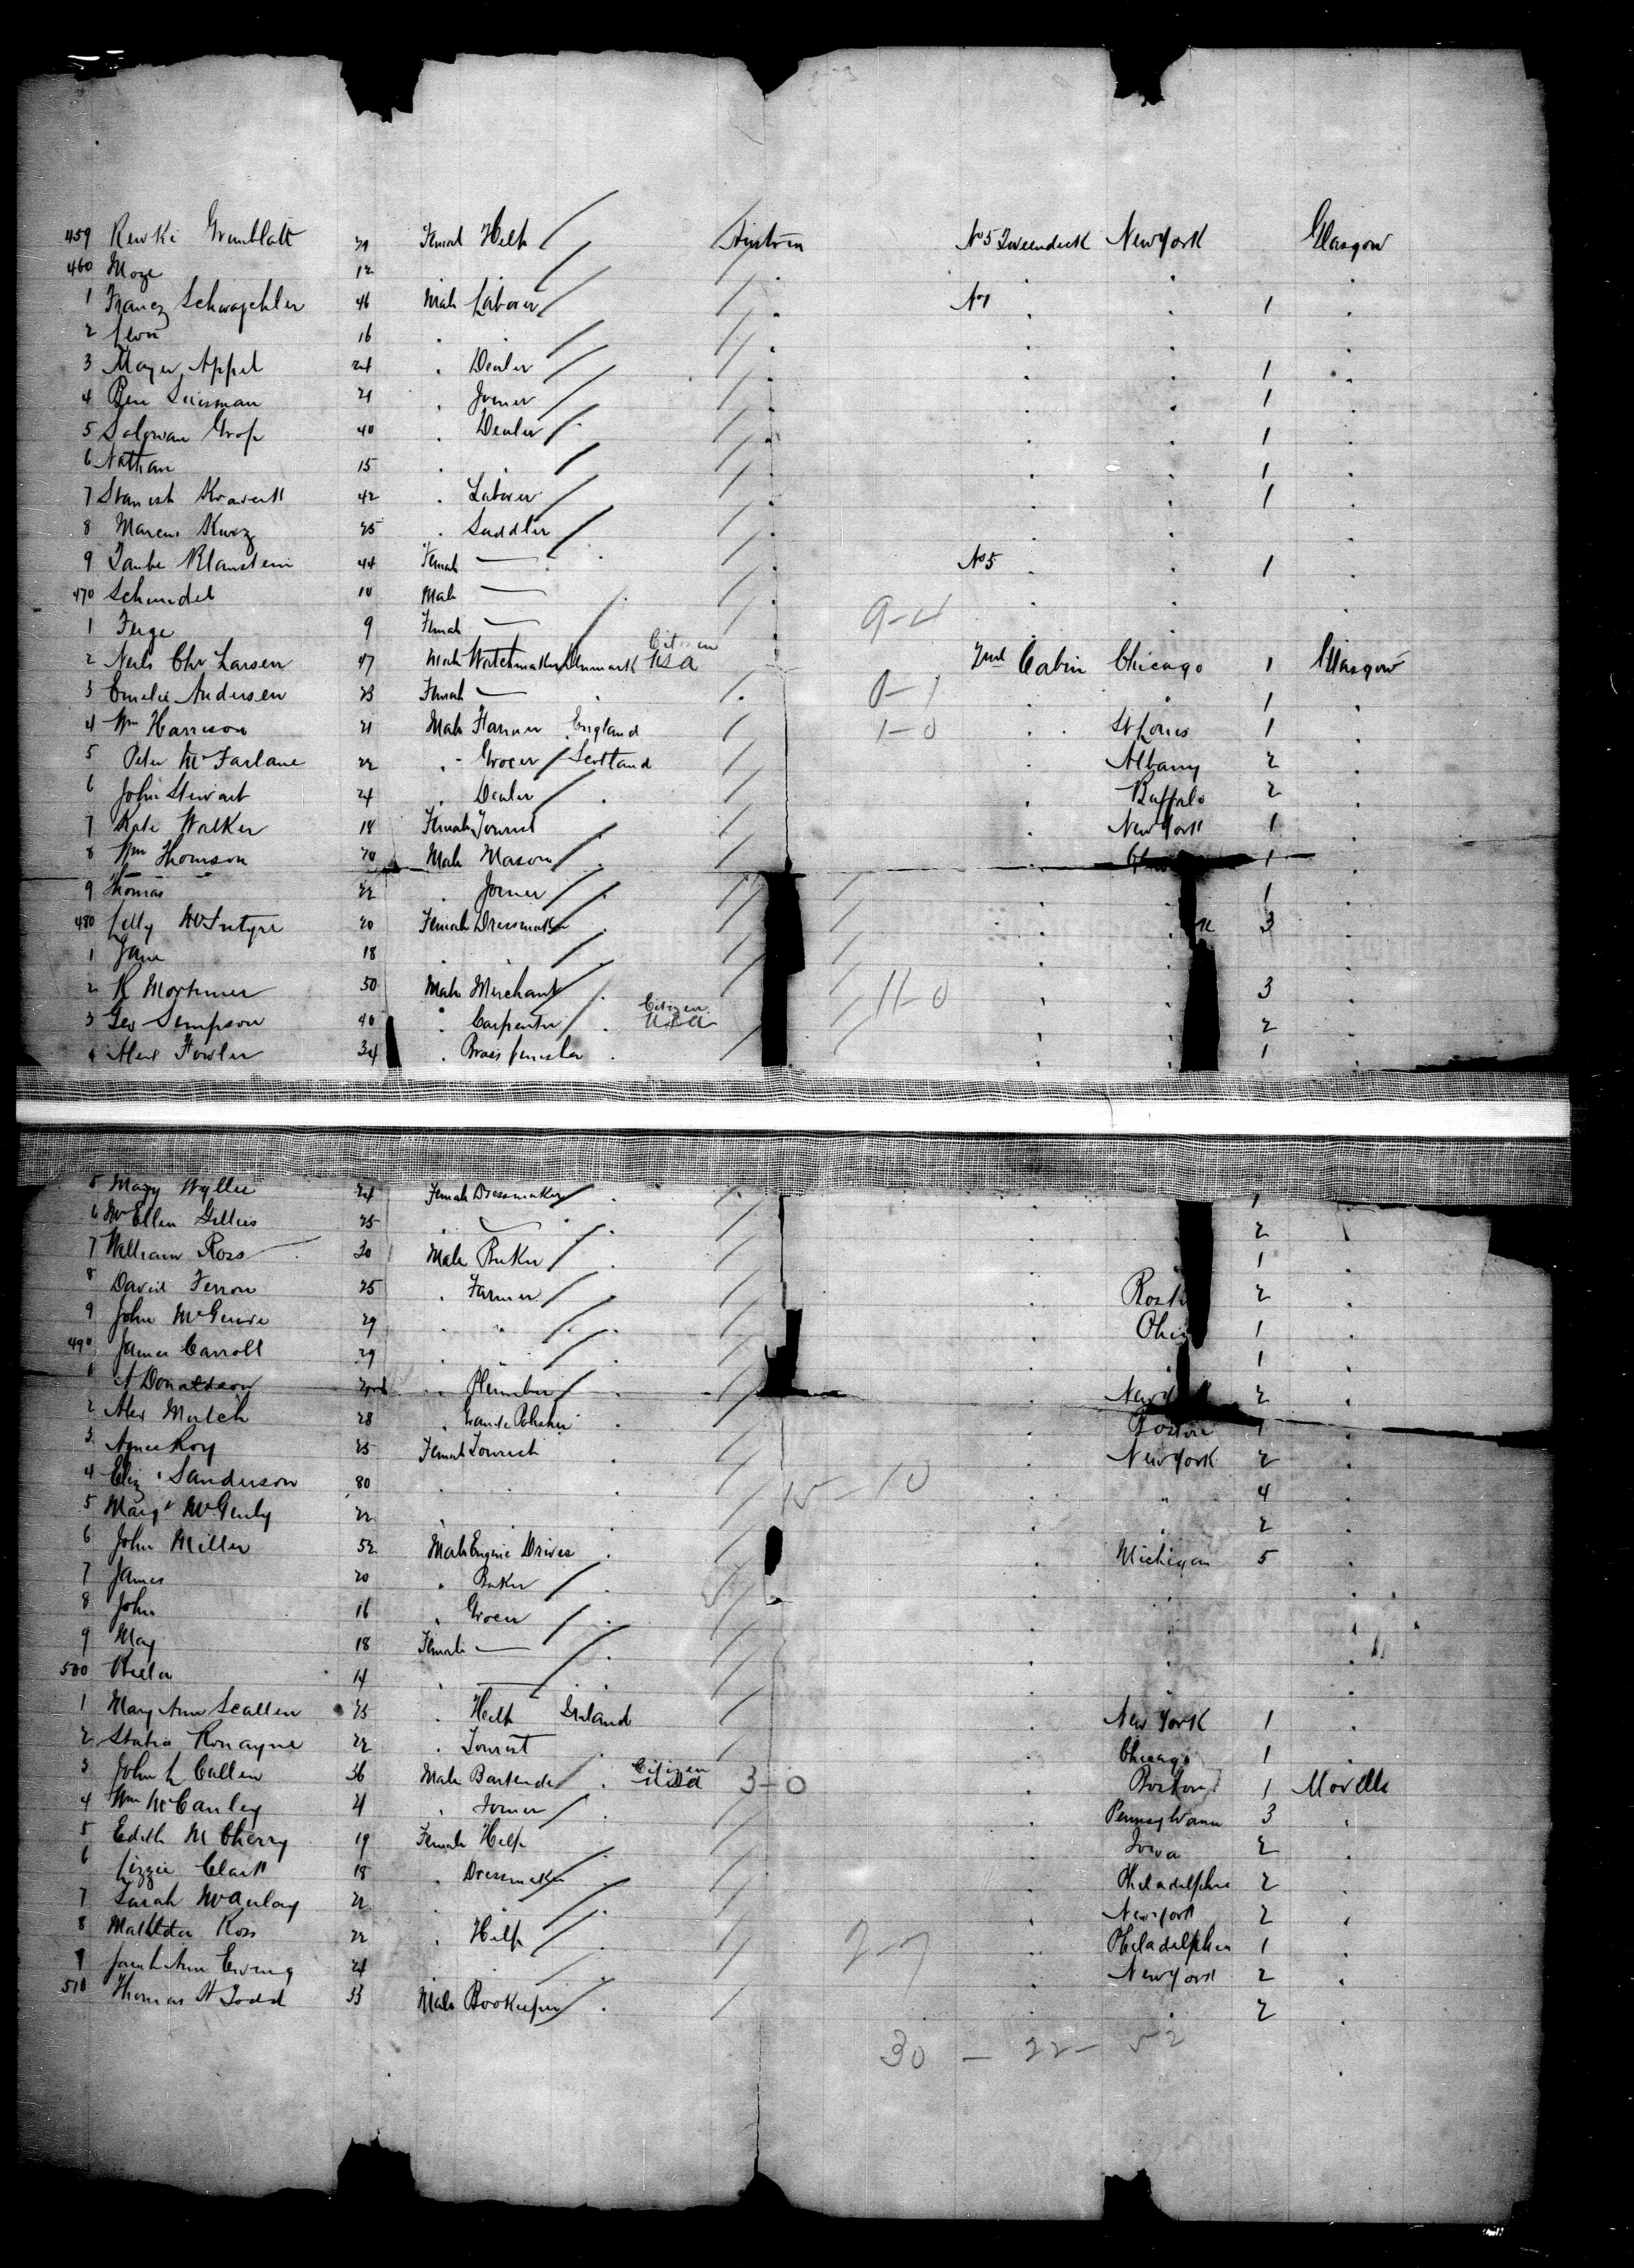 459 Rewki Grunblatt Femal Help Austrian No 5 Tweendeck New York Glasgow
460 Moze 12
1 Francz 46 Male Laborer No 1 1
2 Leon 16
3 Mayer Appel 24 Dealer 1
4 Ben 21 Joiner 1
5 40 Dealer 1
6 Nathan 15 1
7 42 Laborer 1
8 Marcus Kurz 25 Saddler
9 Taube Blaustein 44 Femal — No 5 1
470 Schmidel 10 Male —
1 Feige 9 Femal — 9-4
2 Neils Chr Larsen 47 Male Watchmaker Denmark Citizen USA 2nd Cabin Chicago 1 Glasgow
3 Emelie Andersen 23 Femal — 0-1 1
4 Wm Harrison 21 Male Farmer England 1-0 St Louis 1
5 Peter McFarlane 22 Grocer Scotland Albany 2
6 John Stewart 24 Dealer Buffalo 2
7 Kate Walker 18 Female Tourist New York 1
8 Wm Thomson 20 Male Mason 1
9 Thomas 22 Joiner 1
480 McIntyre 20 Female Dressmaker 3
1 Jane 18
2 R Mortimer 50 Male Merchant 11-0 3
3 Geo Simpson 40 Carpenter Citizen USA 2
4 Alex Fowler 34 Brass finisher 1
5 Mary Wyllie 24 Female Dressmaker 1
6 Mrs Ellen Gillies 25 2
7 William Ross 30 Male Baker 1
8 David Ferrow 25 Farmer Bost 2
9 John 29 Ohio 1
490 James Carroll 29 1
1 A Donaldson Plumber New 2
2 Alex Mutch 28 Granite Polisher Boston 1
3 Agnes Roy 25 Femal Tourist New York 2
4 Eliz Sanderson 80 15-10 4
5 Margt 22 2
6 John Miller 52 Male Engine Driver Michigan 5
7 James 20 Baker
8 John 16 Grocer
9 May 18 Female —
500 Bella 14
1 Mary Ann Scallen 23 Help Ireland New York 1
2 Statia Ronayne 22 Tourist Chicago 1
3 John L Cullen 36 Male Bartender Citizen USA 3-0 Boston 1 Moville
4 Wm McCauley 21 Joiner Pennsylvania 3
5 Edith McCherry 19 Female Help Iowa 2
6 Lizzie Clark 18 Dressmaker Philadelphia 2
7 Sarah McAulay 22 New York 2
8 Mathilda Ross 22 Help 2-7 Philadelphia 1
9 Sarah Ann Ewing 21 New York 2
510 Thomas H Todd 33 Male Bookeeper 2
30 — 22 — 52